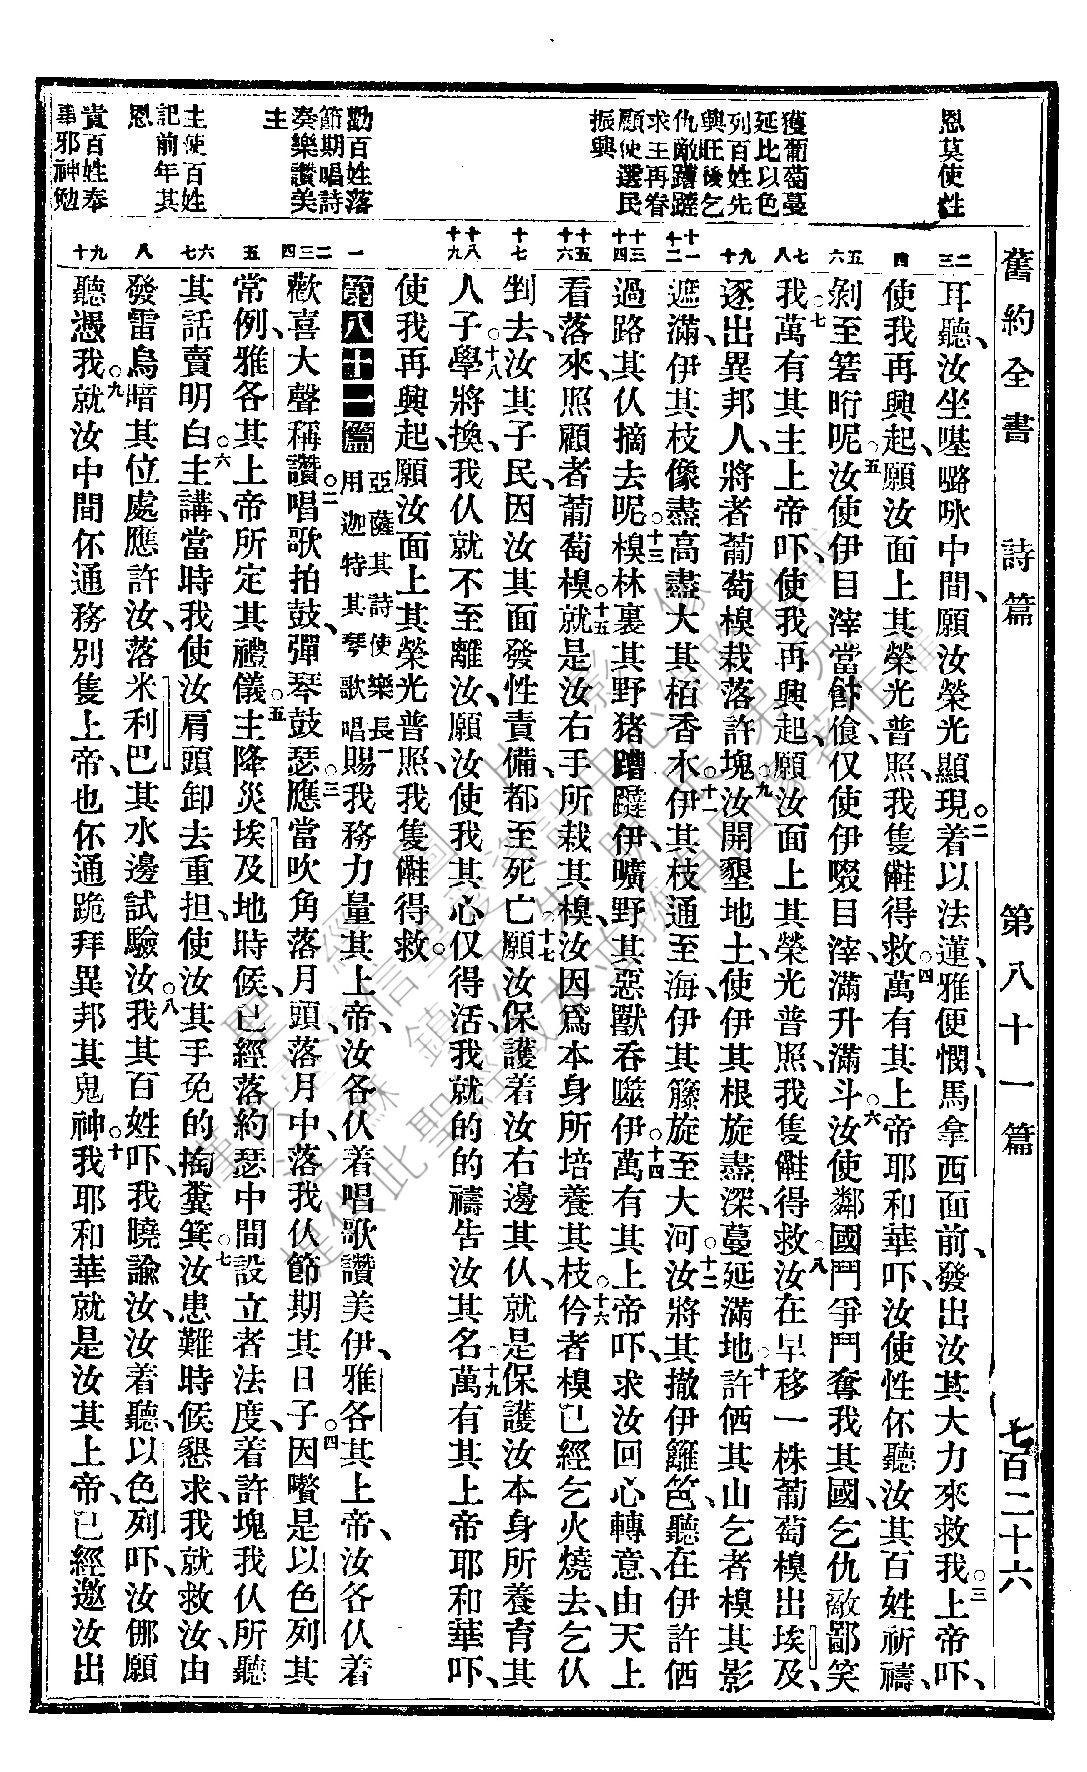 舊約全書 詩篇 第八十一篇 七百二十六
恩莫使性
獲葡萄蔓
延比以色
列百姓先
興旺後乞
仇敵蹧躂
求主再眷
顧使選民
振興
勸百姓落
節期唱詩
奏樂讚美
主
主使百姓
記前年其
恩
責百姓奉
事邪神勉
二三 耳聽、汝坐𠻘㘔咏中間、願汝榮光顯現。二着以法蓮、雅便憫、馬拿西面前、發出汝其大力來救我。三上帝吓、
四 使我再興起、願汝面上其榮光普照、我隻㒰得救。四萬有其上帝耶和華吓、汝使性伓聽汝其百姓祈禱、
五六 剝至箬䀪呢。五汝使伊目滓當餸飱、仅使伊啜目滓、滿升滿斗。六汝使鄰國鬥爭鬥奪我其國、乞仇敵鄙笑
七八 我。七萬有其主上帝吓、使我再興起、願汝面上其榮光普照、我隻㒰得救。八汝在早移一株葡萄樑出埃及、
九十 逐出異邦人、將者葡萄樑栽落許塊。九汝開墾地土、使伊其根旋盡深、蔓延滿地。十許佰其山乞者樑其影
十一十二 遮滿、伊其枝像盡高盡大其栢香木。十一伊其枝通至海、伊其籐旋至大河。十二汝將其撤伊籬笆、聽在伊許佰
十三十四 過路其仈摘去呢。十三樑林裏其野猪蹧躂伊、曠野其惡獸吞噬伊。十四萬有其上帝吓、求汝回心轉意、由天上
十五十六 看落來、照顧者葡萄樑。十五就是汝右手所栽其樑、汝因爲本身所培養其枝。十六伱者樑已經乞火燒去、乞仈
十七 剉去、汝其子民、因汝其面發性責備、都至死亡。十七願汝保護着汝右邊其仈、就是保護汝本身所養育其
十八十九 人子。十八學將換、我仈就不至離汝、願汝使我其心仅得活、我就的的禱告汝其名。十九萬有其上帝耶和華吓、
使我再興起、願汝面上其榮光普照、我隻㒰得救。
一 第八十一篇 亞薩其詩、使樂長用迦特其琴歌唱 一賜我務力量其上帝、汝各仈着唱歌讚美伊、雅各其上帝、汝各仈着
二三四 歡喜大聲稱讚。二唱歌拍鼓、彈琴鼓瑟。三應當吹角落月頭、落月中、落我仈節期其日子。四因嚽是以色列其
五 常例、雅各其上帝所定其禮儀。五主降災埃及地時候、已經落約瑟中間設立者法度、着許塊我仈所聽
六七 其話賣明白。六主講、當時我使汝肩頭卸去重担、使汝其手免的掏糞箕。七汝患難時候懇求、我就救汝、由
八 發雷烏暗其位處應許汝、落米利巴其水邊試驗汝。八我其百姓吓、我曉諭汝、汝着聽、以色列吓、汝倻願
九十 聽憑我。九就汝中間伓通務別隻上帝、也伓通跪拜異邦其鬼神。十我耶和華就是汝其上帝、已經邀汝出